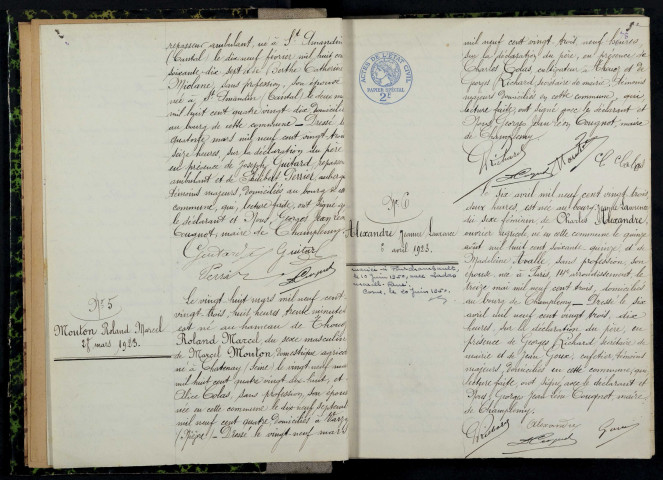 repasseur ambulant, né à St Amandin
(Cantal) le dix neuf février mil huit cent
soixante dix sept et de Berthe Catherine
sans profession, son épouse
née à St Amandin (Cantal) le deux
mil huit cent quatre vingt dix domiciliés
au bourg de cette commune _ Dressé le
quatorze mars mil neuf cent vingt trois
seize heures, sur la déclaration du père
en présence de Joseph Guitard, repasseur
ambulant et de Perrier, aubergiste
témoins majeurs, domiciliés au bourg de cette
commune, qui, lecture faite, ont signé avec
le déclarant et Nous, Georges Jean Léon
Cougnot, maire de Champlemy.
Guitard Guitard
Perrier
N° 5
Mouton Roland Marcel
28 mars 1923.
Le vingt huit mars mil neuf cent
vingt trois huit heures trente minutes
est né au hameau de Thoue
Roland Marcel, du sexe masculin
de Marcel Mouton domestique agricole
né à Chatenay (Seine) le vingt neuf
mil huit cent quatre vingt dix huit, et
Alice Colas, sans profession, son épouse
née en cette commune le dix neuf septembre
mil neuf cent quatre domiciliés à Varzy
(Nièvre) _ Dressé le vingt neuf mars
ACTES DE L'ETAT CIVIL
PAPIER SPECIAL
2F
N° 6
Alexandre Jeanne Laurence
6 avril 1923.
le 10 juin 1950, avec
le 20 juin 1950.
mil neuf cent vingt trois, neuf heures,
sur la déclaration du père, en présence de
Charles Colas cultivateur à Thoue et de
Georges Richard, secrétaire de mairie, témoins
majeurs domiciliés en cette commune, qui
lecture faite, ont signé avec le déclarant et
Nous Georges Jean Léon Cougnot, maire
de Champlemy.
GRichard Mouton Ch Colas
Le six avril mil neuf cent vingt trois
deux heures, est née au bourg Jeanne Laurence
du sexe féminin de Charles Alexandre,
ouvrier agricole, né en cette commune le quinze
août mil huit cent soixante quinze et de
Madeleine Avalle, sans profession, son
épouse née à Paris, arrondissement, le
treize mai mil neuf cent trois, domiciliés
au bourg de Champlemy _ Dressé le six
avril mil neuf cent vingt trois, dix
heures, sur la déclaration du père, en
présence de Georges Richard secrétaire de
mairie et de Jean Goux, cafetier, témoins
majeurs, domiciliés en cette commune, qui
lecture faite ont signé avec le déclarant et
Nous, Georges Jean Léon Cougnot, maire
de Champlemy.
GRichard Alexandre Goux